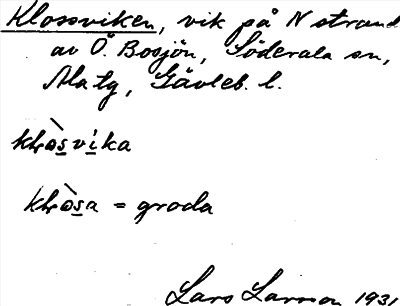 Klossviken, vik på N strand
av Ö. Bosjön, Söderala sn,
Ala tg, Gävleb. l.
klɷ̀svíka
klɷ̀sa = groda
Lars Larsson 1931